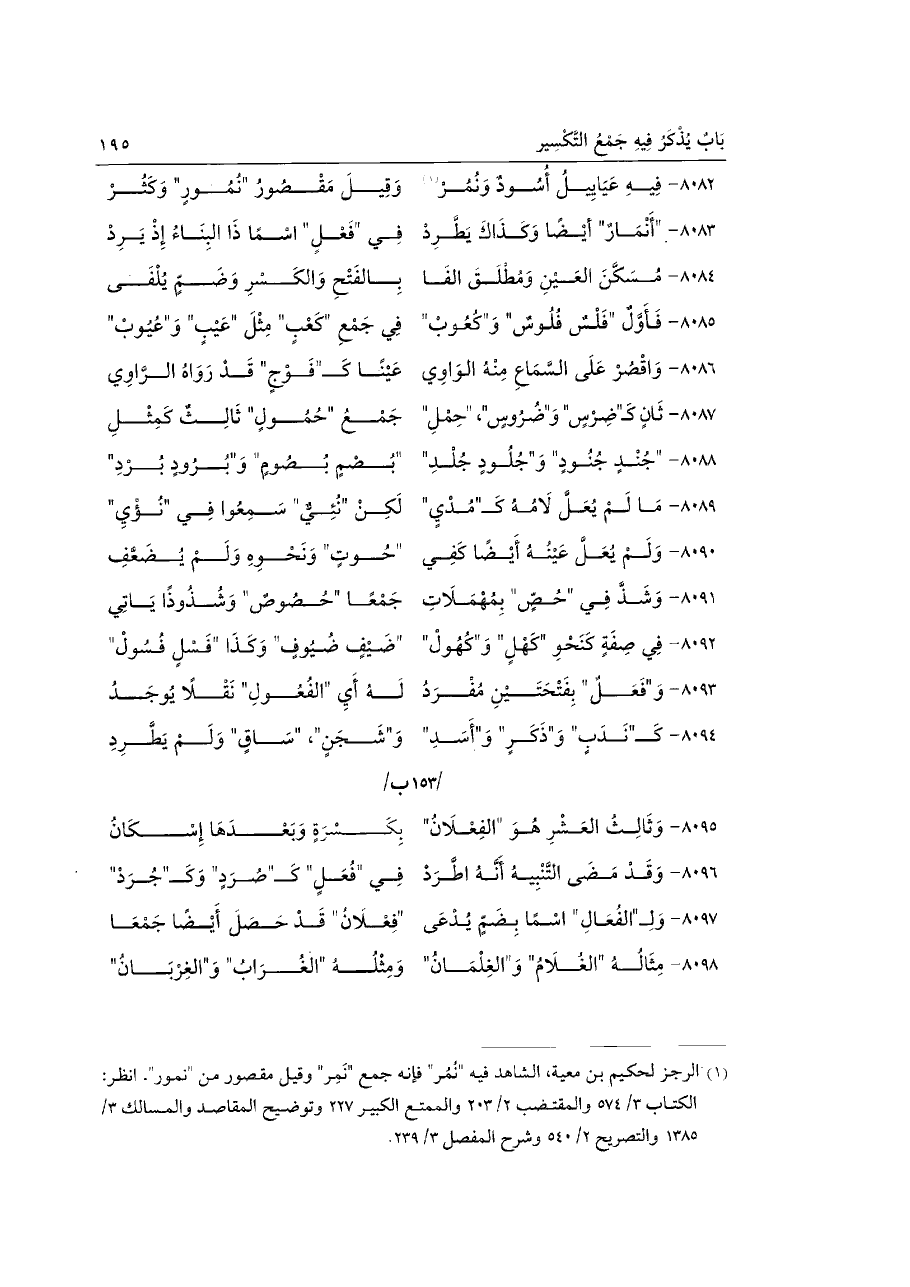 بَابٌ يُذْكَرُ فِيهِ جَمْعُ التَّكْسِيرِ ١٩٥
٨٠٨٢- فِيهِ عَيَايِيلُ أُسُودٌ وَنُمُرْ(١) وَقِيلَ مَقْصُورُ "نُمُورٍ" وَكَثُرْ
٨٠٨٣- "أَنْمَارٌ" أَيْضًا وَكَذَاكَ يَطَّرِدْ فِي "فَعْلٍ" اسْمًا ذَا البِنَاءُ إِذْ يَرِدْ
٨٠٨٤- مُسَكَّنَ العَيْنِ وَمُطْلَقَ الفَا بِالفَتْحِ وَالكَسْرِ وَضَمٍّ يُلْفَى
٨٠٨٥- فَأَوَّلٌ "فَلْسٌ فُلُوسٌ" وَ"كُعُوبْ" فِي جَمْعِ "كَعْبٍ" مِثْلَ "عَيْبٍ" وَ"عُيُوبْ"
٨٠٨٦- وَاقْصُرْ عَلَى السَّمَاعِ مِنْهُ الوَاوِي عَيْنًا كَـ"فَوْجٍ" قَدْ رَوَاهُ الرَّاوِي
٨٠٨٧- ثَانٍ كَـ"ضِرْسٍ" وَ"ضُرُوسٍ"، "حِمْلِ" جَمْعُ "حُمُولٍ" ثَالِثٌ كَمِثْلِ
٨٠٨٨- "جُنْدٍ جُنُودٍ" وَ"جُلُودٍ جُلْدِ" "بُصْمٍ بُصُومٍ" وَ"بُرُودٍ بُرْدِ"
٨٠٨٩- مَا لَمْ يُعَلَّ لَامُهُ كَـ"مُدْيِ" لَكِنْ "نُئِيٌّ" سَمِعُوا فِي "نُؤْيِ"
٨٠٩٠- وَلَمْ يُعَلَّ عَيْنُهُ أَيْضًا كَفِي "حُوتٍ" وَنَحْوِهِ وَلَمْ يُضَعَّفِ
٨٠٩١- وَشَذَّ فِي "حُصٍّ" بِمُهْمَلَاتِ جَمْعًا "حُصُوصٌ" وَشُذُوذًا يَاتِي
٨٠٩٢- فِي صِفَةٍ كَنَحْوِ "كَهْلٍ" وَ"كُهُولْ" "ضَيْفٍ ضُيُوفٍ" وَكَذَا "فَسْلٍ فُسُولْ"
٨٠٩٣- وَ"فَعَلٌ" بِفَتْحَتَيْنِ مُفْرَدُ لَهُ أَيِ "الفُعُولِ" نَقْلًا يُوجَدُ
٨٠٩٤- كَـ"نَدَبٍ" وَ"ذَكَرٍ" وَ"أَسَدِ" وَ"شَجَنٍ"، "سَاقٍ" وَلَمْ يَطَّرِدِ
/١٥٣ب/
٨٠٩٥- وَثَالِثُ العَشْرِ هُوَ "الفِعْلَانُ" بِكَسْرَةٍ وَبَعْدَهَا إِسْكَانُ
٨٠٩٦- وَقَدْ مَضَى التَّنْبِيهُ أَنَّهُ اطَّرَدْ فِي "فُعَلٍ" كَـ"صُرَدٍ" وَكَـ"جُرَدْ"
٨٠٩٧- وَلِـ"الفُعَالِ" اسْمًا بِضَمٍّ يُدْعَى "فِعْلَانُ" قَدْ حَصَلَ أَيْضًا جَمْعَا
٨٠٩٨- مِثَالُهُ "الغُلَامُ" وَ"الغِلْمَانُ" وَمِثْلُهُ "الغُرَابُ" وَ"الغِرْبَانُ"
(١) الرجز لحكيم بن معية، الشاهد فيه "نُمُر" فإنه جمع "نَمِر" وقيل مقصور من "نمور". انظر:
الكتاب ٣/ ٥٧٤ والمقتضب ٢/ ٢٠٣ والممتع الكبير ٢٢٧ وتوضيح المقاصد والمسالك ٣/
١٣٨٥ والتصريح ٢/ ٥٤٠ وشرح المفصل ٣/ ٢٣٩.